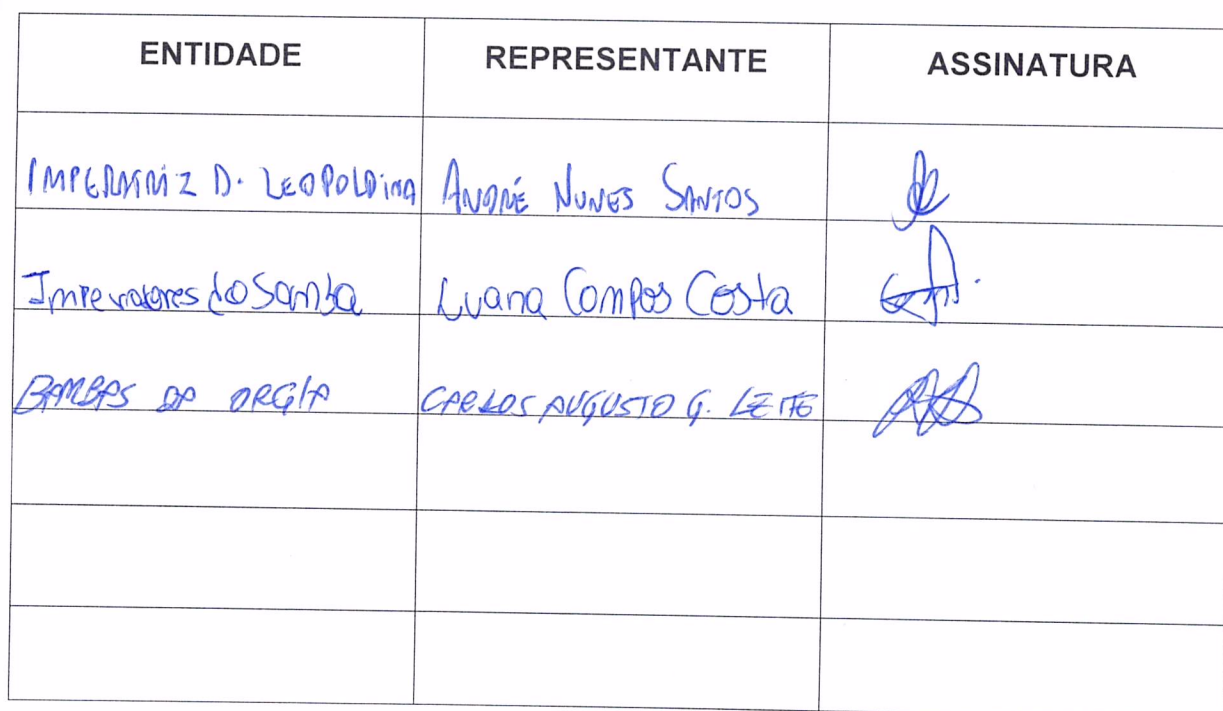 ENTIDADE REPRESENTANTE ASSINATURA
IMPERATRIZ D. LEOPOLDINA ANDRÉ NUNES SANTOS
Imperadores do Samba Luana Campos Costa
BAMBAS DA ORGIA CARLOS AUGUSTO G. LEITE